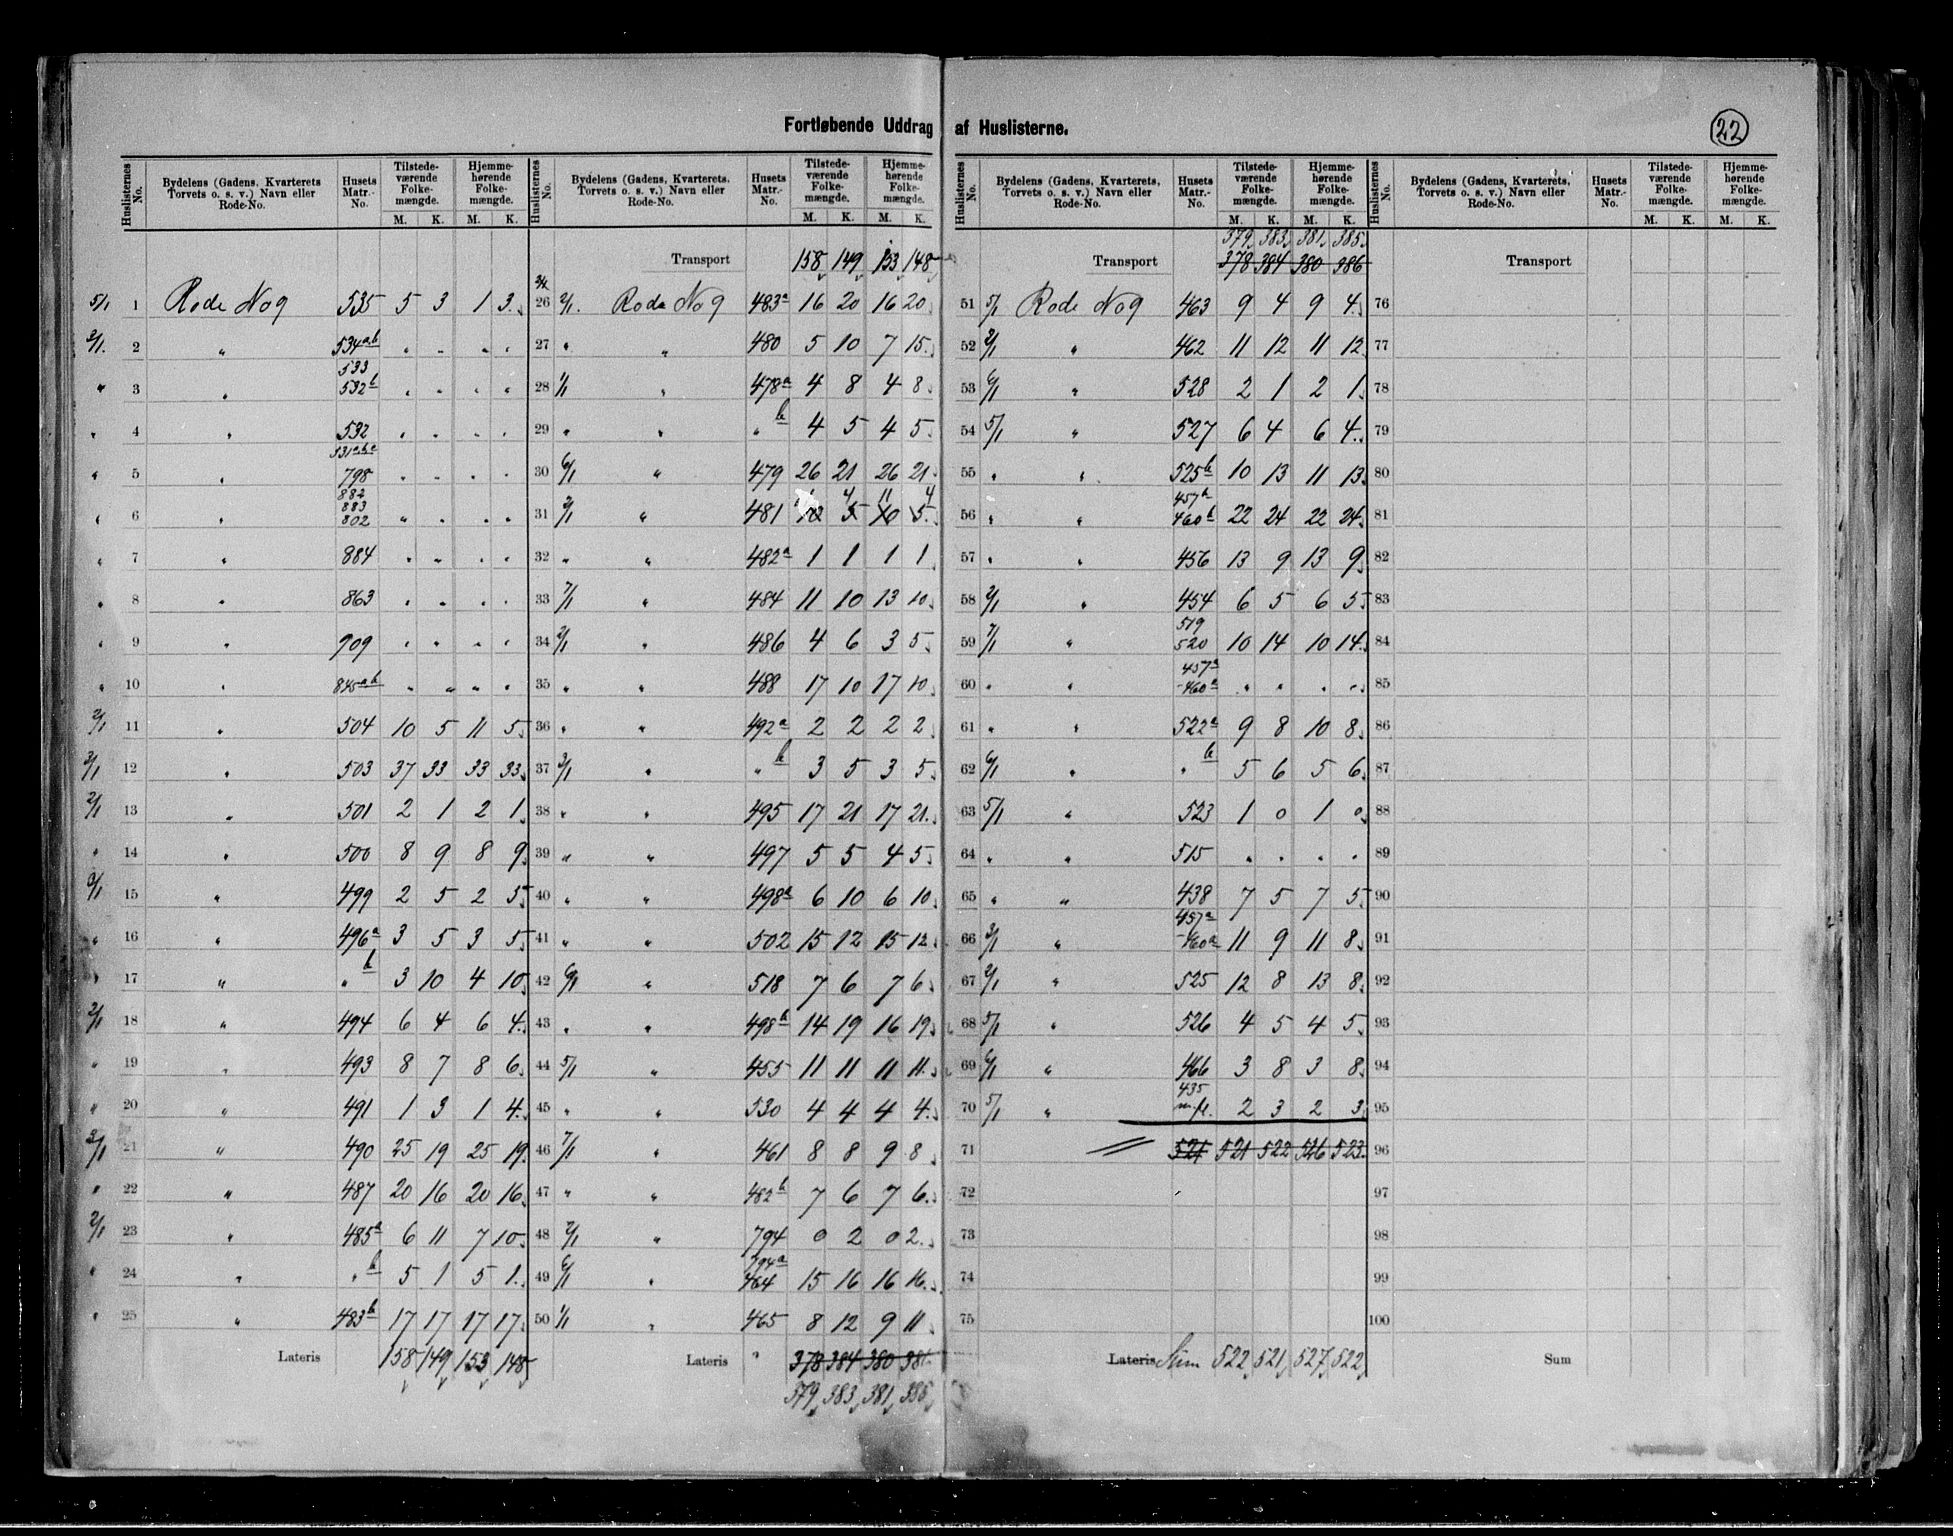 Fortløbende Uddrag af Huslisterne.
22
Huslisternes No. | Bydelens (Gadens, Kvarterets Torvets o. s. v.) Navn eller Rode-No. | Husets Matr.-No. | Tilstedeværende Folkemængde. M. K. | Hjemmehørende Folkemængde. M. K.
5/1 1 Rode No 9 535 5 3 1 3
2/1. 2 " 534 a b " " " "
" 3 " 533 532 b " " " "
" 4 " 532 " " " "
" 5 " 531 a b c 798 " " " "
" 6 " 882 883 802 " " " "
" 7 " 884 " " " "
" 8 " 863 " " " "
" 9 " 909 " " " "
" 10 " 845 a b " " " "
2/1 11 " 504 10 5 11 5
3/1 12 " 503 37 33 33 33
2/1 13 " 501 2 1 2 1
" 14 " 500 8 9 8 9
3/1 15 " 499 2 5 2 5
" 16 " 496 a 3 5 3 5
" 17 " " b 3 10 4 10
2/1 18 " 494 6 4 6 4
" 19 " 493 8 7 8 6
" 20 " 491 1 3 1 4
3/1 21 " 490 25 19 25 19
" 22 " 487 20 16 20 16
2/1 23 " 485 a 6 11 7 10
" 24 " " b 5 1 5 1
" 25 " 483 b 17 17 17 17
Lateris 158 149 153 148
Huslisternes No. | Bydelens (Gadens, Kvarterets. Torvets o. s. v.) Navn eller Rode-No. | Husets Matr.-No. | Tilstedeværende Folkemængde. M. K. | Hjemmehørende Folkemængde. M. K.
Transport 158 149 153 148
26 2/1. Rode No 9 483 a 16 20 16 20
27 " " 480 5 10 7 15
28 1/1 " 478 a 4 8 4 8
29 " " " b 4 5 4 5
30 6/1 " 479 26 21 26 21
4 11 4
31 2/1 " 481 10 5 10 5
32 " " 482 a 1 1 1 1
33 7/1 " 484 11 10 13 10
34 2/1 " 486 4 6 3 5
35 " " 488 17 10 17 10
36 " " 492 a 2 2 2 2
37 3/1 " " b 3 5 3 5
38 " " 495 17 21 17 21
39 " " 497 5 5 4 5
40 " " 498 a 6 10 6 10
41 " " 502 15 12 15 12
42 6/1 " 518 7 6 7 6
43 " " 498 b 14 19 16 19
44 5/1 " 455 11 11 11 11
45 " " 530 4 4 4 4
46 7/1 " 461 8 8 9 8
47 " " 482 b 7 6 7 6
48 7/1 " 794 0 2 0 2
49 6/1 " 794 a 464 15 16 16 16
50 1/1 " 465 8 12 9 11
Lateris " 378 384 380 386
379 383 381 385
Huslisternes No. | Bydelens (Gadens, Kvarterets, Torvets o. s. v.) Navn eller Rode-No. | Husets Matr.-No. | Tilstedeværende Folkemængde. M. K. | Hjemmehørende Folkemængde. M. K.
379 383 381 385
Transport 378 384 380 386
51 5/1 Rode No 9 463 9 4 9 4
52 2/1 " 462 11 12 11 12
53 6/1 " 528 2 1 2 1
54 5/1 " 527 6 4 6 4
55 " " 525 b 10 13 11 13
56 " " 457 b 460 b 22 24 22 24
57 " " 456 13 9 13 9
58 2/1 " 454 6 5 6 5
59 7/1 " 519 520 10 14 10 14
60 " " 457 a -460 a " " " "
61 " " 522 a 9 8 10 8
62 6/1 " " b 5 6 5 6
63 5/1 " 523 1 0 1 0
64 " " 515 " " " "
65 " " 438 7 5 7 5
66 3/1 " 457 a -460 a 11 9 11 8
67 2/1 " 525 12 8 13 8
68 5/1 " 526 4 5 4 5
69 6/1 " 466 3 8 3 8
70 5/1 " 435 m.fl. 2 3 2 3
71 521 521 522 526 523
72
73
74
75
Lateris Sum 522 521 527 522
Huslisternes No. | Bydelens (Gadens, Kvarterets, Torvets o. s. v.) Navn eller Rode-No. | Husets Matr.-No. | Tilstedeværende Folkemængde. M. K. | Hjemmehørende Folkemængde. M. K.
Transport
76
77
78
79
80
81
82
83
84
85
86
87
88
89
90
91
92
93
94
95
96
97
98
99
100
Sum